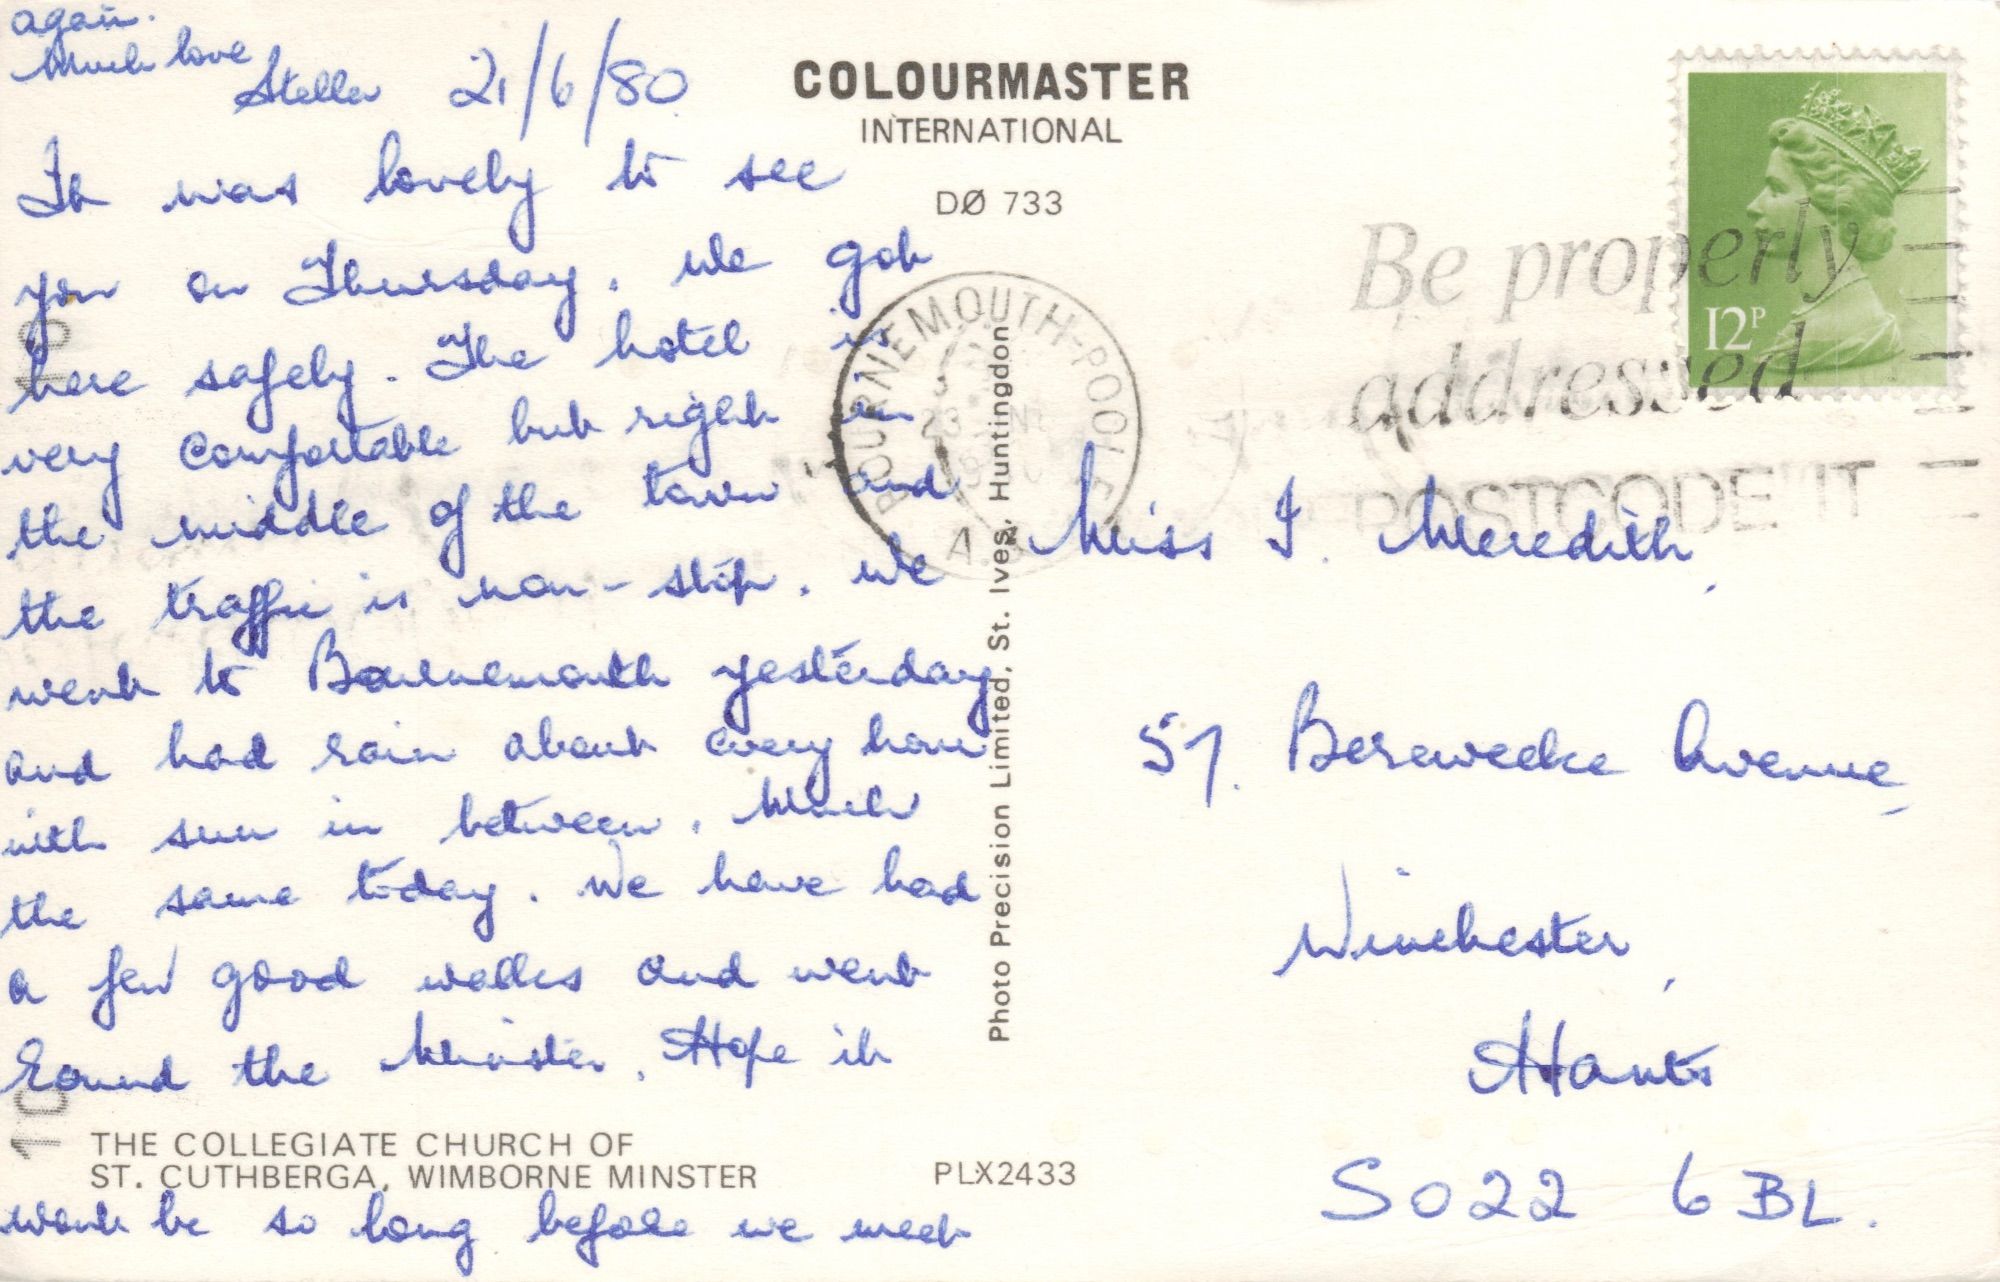 21/6/80
It was lovely to see
you on Thursday. We got
here safely. The hotel is
very comfortable but right in
the middle of the town and
the traffic is non-stop. We
went to Bournemouth yesterday
and had rain about every hour
with sun in between. Much
the same today. We have had
a few good walks and went
round the Minster. Hope it
wont be so long before we meet
again.
Much love
Stella
THE COLLEGIATE CHURCH OF
ST. CUTHBERGA, WIMBORNE MINSTER
PLX2433
COLOURMASTER
INTERNATIONAL
DØ 733
Photo Precision Limited, St. Ives, Huntingdon
BOURNEMOUTH-POOLE
23
A
Be properly
addressed
POSTCODE IT
12P
Miss I. Meredith,
57. Bereweeke Avenue,
Winchester,
Hants
SO22 6BL.